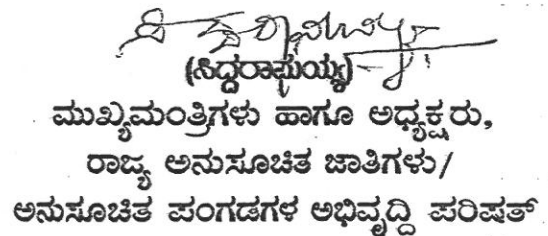 (ಸಿದ್ದರಾಮಯ್ಯ)
ಮುಖ್ಯಮಂತ್ರಿಗಳು ಹಾಗೂ ಅಧ್ಯಕ್ಷರು,
ರಾಜ್ಯ ಅನುಸೂಚಿತ ಜಾತಿಗಳು/
ಅನುಸೂಚಿತ ಪಂಗಡಗಳ ಅಭಿವೃದ್ಧಿ ಪರಿಷತ್